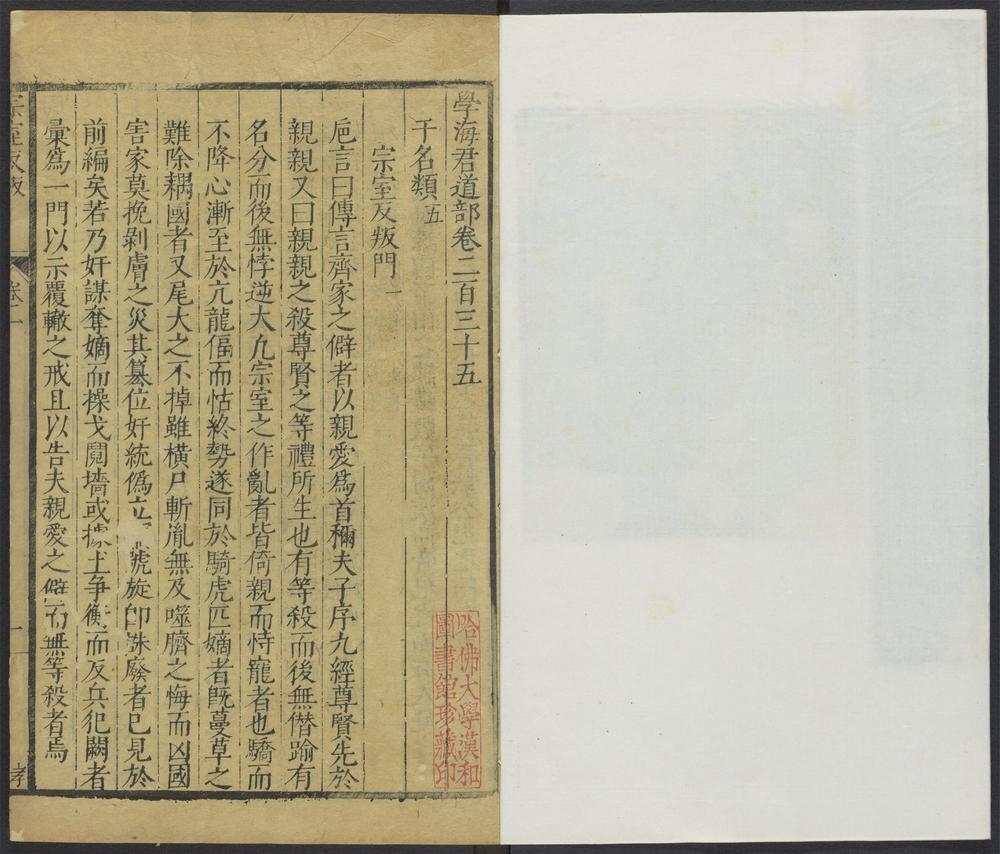 學海君道部卷二百三十五
干名類五
宗室反叛門一
巵言曰傳言齊家之僻者以親愛爲首稱夫子序九經尊賢先於
親親又曰親親之殺尊賢之等禮所生也有等殺而後無僭踰有
名分而後無悖逆大凡宗室之作亂者皆倚親而恃寵者也驕而
不降心漸至於亢龍偪而怙終勢遂同於騎虎匹嫡者旣蔓草之
難除耦國者又尾大之不掉雖橫尸斬胤無及噬臍之悔而凶國
害家莫挽剝膚之災其簒位奸統僞立號旋卽誅廢者已見於
前編矣若乃奸謀奪嫡而操戈鬩墻或據土争衡而反兵犯闕者
彙爲一門以示覆轍之戒且以告夫親愛之僻而無等殺者焉
宗室反叛
卷二
一
孝
哈佛大學漢和
圖書館珍藏印